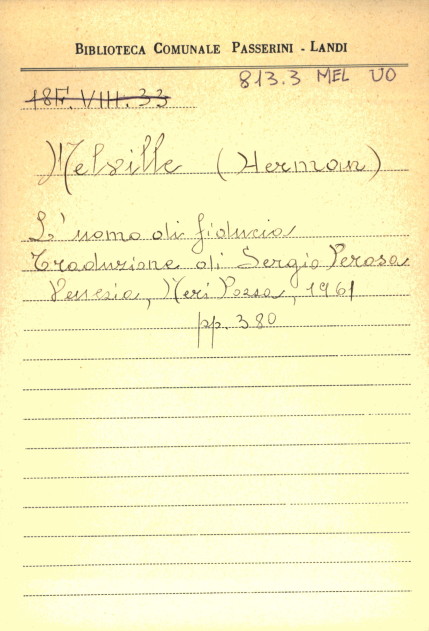 BIBLIOTECA COMUNALE PASSERINI - LANDI
813.3 MEL UO
18F. VIII. 33
Melville (Herman)
L'uomo di fiducia
Traduzione di Sergio Perosa
Venezia, Neri Pozza, 1961
pp. 380